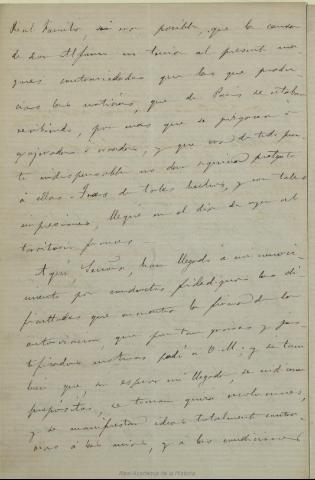 Real Familia, no era posible, que la causa
de don Alfonso no tuviera al presente ma-
yores contrariedades que las que produ-
cian las noticias, que de Paris se estaban
recibiendo, por mas que se juzgaran
exajeradas ó, y que era de todo pun-
to indispensable no dar siquiera pretexto
á ellas. Tras de tales hechos, y con tales
impresiones, llegué en el dia de ayer al
territorio frances.
Aqui, Señora, han llegado á mi conoci-
miento por conductos fidedignos las di-
ficultades que encuentra la firma de la
autorizacion, que por tan graves y jus-
tificados motivos pedí á V. M.; y se tam-
bien que, sin esperar mi llegada, se
propósitos, se toman resoluciones,
y se manifiestan ideas totalmente contra-
rias á las mias, y á las condiciones
Real Academia de la Historia